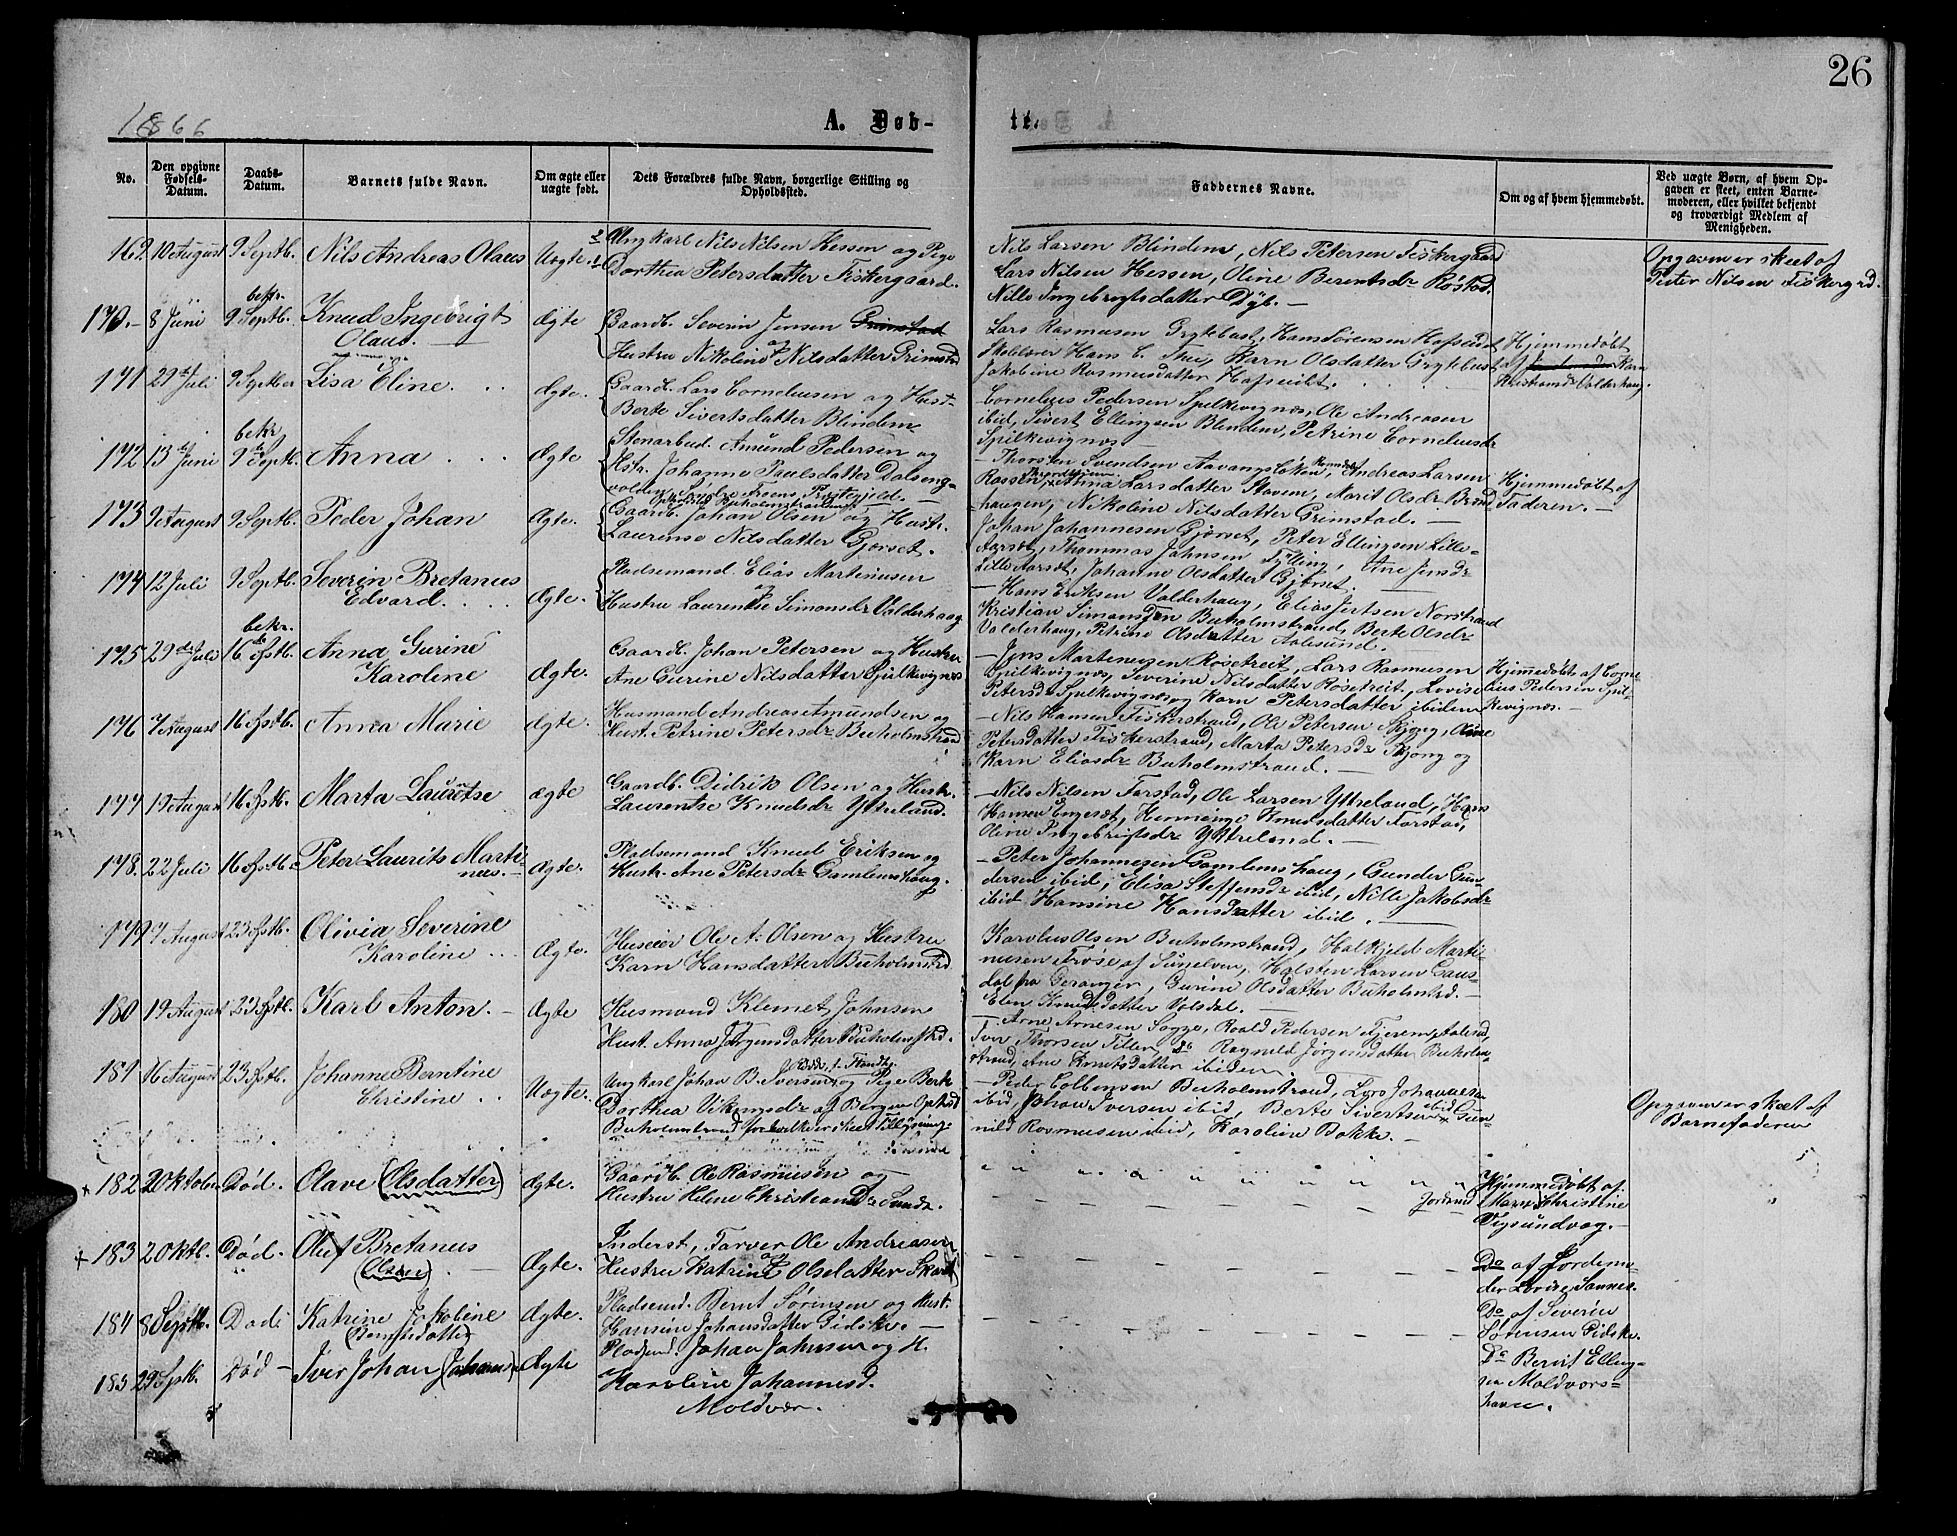 26
1866
A. Døb-
te.
No.
Den opgivne Fødsels-Datum.
Daabs-Datum.
Barnets fulde Navn.
Om ægte eller uægte født.
Dets Forældres fulde Navn, borgerlige Stilling og Opholdssted.
Faddernes Navne.
Om og af hvem hjemmedøbt.
Ved uægte Børn, af hvem Opgaven er skeet, enten Barnemoderen, eller hvilket bekjendt og troværdigt Medlem af Menigheden.
169. 10 August 9 Septb. Nils Andreas Olaus Uægte.
Ungkarl Nils Nilsen Hessen og Pige
Dorthea Petersdatter Fiskergaard.
Nils Larsen Blindem, Nils Petersen Fiskergaard
Lars Nilsen Hessen, Oline Berentsdr Røstad.
Nille Ingebrigtsdatter Dyb. —
Opgaven er skeet af
Peter Nilsen Fiskergrd.
170. 8 Juni bekr. 9 Septb. Knud Ingebrigt
Olaus. Ægte
Gaardb. Severin Jensen Grimstad
og
Hustru Nikoline Nilsdatter Grimstd
Lars Rasmusen Grytebust, Hans Sørensen Hafsuldt
Skolelærer Hans C. Thue, Karn Olsdatter Grytebust
Jakobine Rasmusdatter Hafsuldt.
Hjemmedøbt
af Karn
Valderhaug.
171 29de Juli 9 Septber Lisa Eline. Ægte.
Gaardb. Lars Corneliusen og Hust.
Berte Sivertsdatter Blindem
Cornelius Pedersen Spilkevignæs, Ole Andreasen
ibid, Sivert Ellingsen Blindem, Petrine Cornelusdr
Spilkevignæs
172 13de Juni bekr. 9de Septb. Anna Ægte
Stenarbud. Amund Pedersen og
Hstr. Johanne Paulsdatter Dalseng-
volden, Søndre Froens Prstegjeld. —
Thorsten Svendsen Aavangsløken, Andreas Larsen
Rossen, Anna Larsdatter Stavem, Marit Olsdr Brend-
haugen, Nikoline Nilsdatter Grimstad. —
Hjemmedøbt af
Faderen. —
173 9 August 9 Septb. Peder Johan Ægte.
Gaardb. Johan Olsen og Hust.
Laurense Nilsdatter Gjørset.
Johan Johannesen Gjørset, Peter Ellingsen Lille-
Aarsæt, Thommas Johnsen Fylling, Ane Jensdr
Lille Aarsæt, Johanne Olsdatter Gjørset.
174 12 Juli 9 Septb. Severin Bretanus
Edvard. Ægte.
Pladsemand Elias Martinusen
og
Hustru Laurentse Simonsdr Valderhaug
Hans Eriksen Valderhaug, Elias Jertsen Norstrand
Kristian Simonsen Buholmstrand, Berte Olsdr
Valderhaug, Petrine Olsdatter Aalesund. —
175 29de Juli bekr. 16de Sptb. Anna Gurine
Karoline Ægte.
Gaardb. Johan Petersen og Hustru
Ane Gurine Nilsdatter Spilkevignæs
Jens Martinusen Røsetreit, Lars Rasmusen
Spilkevignæs, Severine Nilsdatter Røsetreit, Lovise
Petersdr Spilkevignæs, og Karn Petersdatter ibidem
Hjemmedøbt af Corne-
lius Pedersen Spil-
kevignæs. —
176 7 August 16 Sptb. Anna Marie Ægte.
Husmand Andreas Amundsen og
Hust. Petrine Petersdr Buholmstrand
Nils Hansen Fiskerstrand, Ole Petersen Skjong, Oline
Petersdatter Fiskerstrand, Marta Petersdr Skjong og
Karn Eliasdr Buholmstrand. —
177 19 August 16 Sptb. Marta Lauritse ægte
Gaardb. Didrik Olsen og Hustr.
Laurentse Knudsdr Yttreland.
Nils Nilsen Farstad, Ole Larsen Yttreland, Hans
Hansen Engesæt, Henninge Knudsdatter Farstad,
Oline Ingebrigtsdr Yttreland. —
178. 22 Juli 16 Sptb. Peter Laurits Marti-
nus. Ægte.
Pladsemand Knud Eriksen og
Hustr. Ane Petersdr Gamlemshaug.
Peter Johannesen Gamlemshaug, Gunder Gun-
dersen ibid, Elisa Steffensdr ibid, Nille Jakobsdr
ibid Hansine Hansdatter ibid. —
179 7 August 23 Sptb. Olivia Severine
Karoline Ægte.
Huseier Ole A. Olsen og Hustru
Karn Hansdatter Buholmstrd
Karolus Olsen Buholmstrand, Halkjeld Marti-
nusen Frøse af Sunelven, Halsten Larsen Gaus-
dal fra Geranger, Gurine Olsdatter Buholmstrd. —
Elen Knudsdatter Volsdal. —
180 19 August 23 Sptb. Karl Anton. Ægte
Husmand Klemet Johnsen
Hust. Anna Jørgensdatter Buholmstrd.
Arne Arnesen Sogge, Roald Pedersen Fjerem, Aalesnd,
Iver Thorsen Tiller, do Ragnild Jørgensdatter Buholm-
strand, Ane Knutsdatter ibidem
181 16 August 23 Sptb. Johanne Berntine
Christine Uægte.
Ungkarl Johan B. Iversen og Pige Berte
Dorthea Vikingsdr af Bergen Ophold
Buholmstrand
Peder Colbensen Buholmstrand, Lars Johannesen
ibid, Johan Iversen ibid, Berte Sivertsen ibid Gun-
nild Rasmusen ibid, Karoline Bakke. —
Opgaven er skeet af
Barnefaderen
182 2 Oktober Død. Olave (Olsdatter) Ægte.
Gaardb. Ole Rasmusen og
Hustru Helene Christiansdr Sunde.
Jordemd
Hjemmedøbt af
Maren Christine
Vegsundvaag. —
183 2 Oktb. Død. Oluf Bretanus
(Olsen) Ægte.
Inderst, Farver Ole Andreasen
og
Hustru Katrine Olsdatter
Do af Jordemo-
der Lovise Sannes.
184 8 Septb. Død Katrine Jakobine
(Berntsdatter) Ægte.
Pladsmd. Bernt Sørensen og Hust.
Hansine Johansdatter Pidske. —
Do af Severin
Sørensen Pidske.
185 29 Sptb. Død — Iver Johan (Johansen) Ægte
Pladsmd. Johan Johnsen og H.
Karoline Johannesd.
Moldvær.
Do Bernt Elling-
sen Moldværs-
havn.